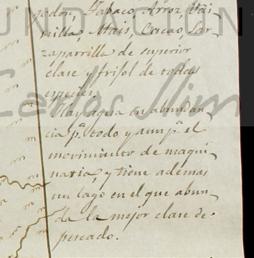 godon, Tabaco, Arroz, Vai-
nilla, Mais, Cacao, Zar-
zaparrilla de superior
clase y frisol de todas
especies.
Hay agua en abundan-
cia p.ª todo y aun p.ª el
movimiento de maqui-
naria, y tiene además
un lago en el que abun-
da la mejor clase de
pescado.
FUNDACIÓN
Carlos Slim